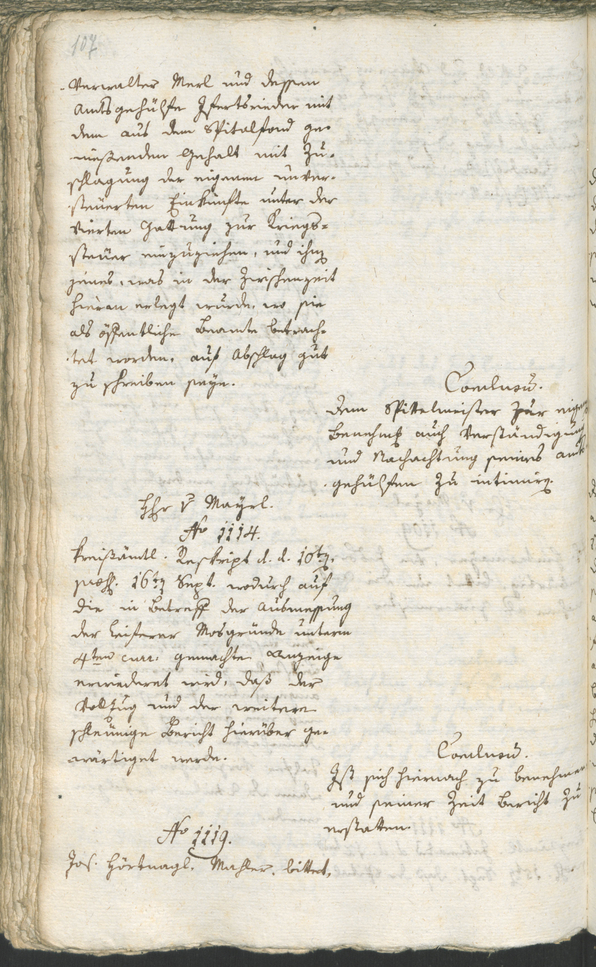 107
Verwalter Merl und dessen
Amtsgehülfe Isserkrieder mit
dem aus dem Spitalfond ge-
nießenden Gehalt mit Zu-
schlagung der eigenen unver-
steuerten Einkünfte unter der
vierten Gattung zur Kriegs-
steuer einzuziehen, und ihnen
jenes, was in der Zwischenzeit
hieran erlegt wurde, wo sie
als öffentliche Beamte betrach-
tet worden, auf Abschlag gut
zu schreiben seye.
Conclusum.
dem Spittelmeister zur eigenen
Benehmen auch Verständigung
und Nachachtung seines Amts-
gehülfen zu intimiren.
Hhr v Mayrl.
No 1114.
Kreisämtl. Reskript d. d. 10ten
praes. 16ten Sept. wodurch auf
die in Betreff der Ausmessung
der Leiferer Mosgründe unterm
4ten curr. gemachte Anzeige
erwiederet wird, daß der
Vollzug und der weitere
schleunige Bericht hierüber ge-
wärtiget werde.
Conclusum.
Ist sich hiernach zu benehmen
und seiner Zeit Bericht zu
erstatten.
No 1119.
Jos. Hörtnagl. Mahler, bittet,